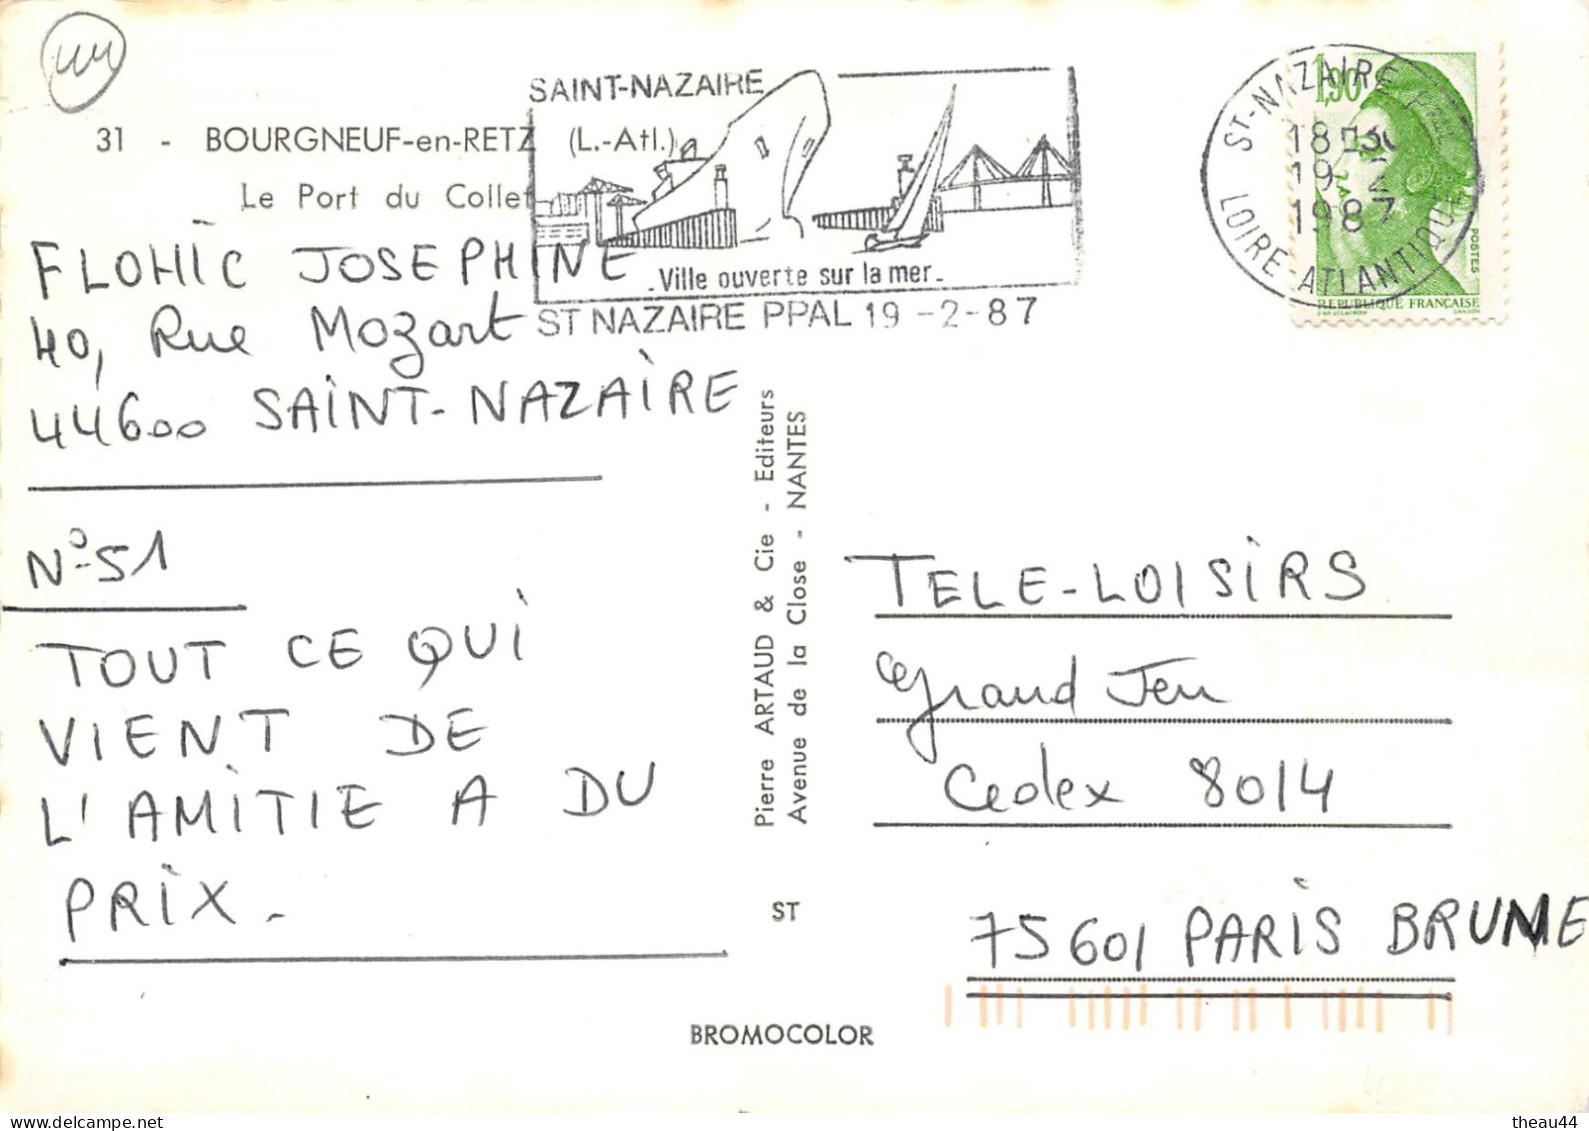 31 - BOURGNEUF-en-RETZ (L.-Atl.)
Le Port du Collet
SAINT-NAZAIRE
Ville ouverte sur la mer
ST NAZAIRE PPAL 19 -2-87
ST-NAZAIRE PPAL
18H30
19 -2
1987
LOIRE-ATLANTIQUE
1,90
POSTES
REPUBLIQUE FRANÇAISE
FLOHIC JOSEPHINE
40, Rue Mozart
44600 SAINT-NAZAIRE
N° 51
TOUT CE QUI
VIENT DE
L'AMITIE A DU
PRIX -
Pierre ARTAUD & Cie - Editeurs
Avenue de la Close - NANTES
ST
BROMOCOLOR
TELE-LOISIRS
Grand Jeu
Cedex 8014
75601 PARIS BRUNE
theau44